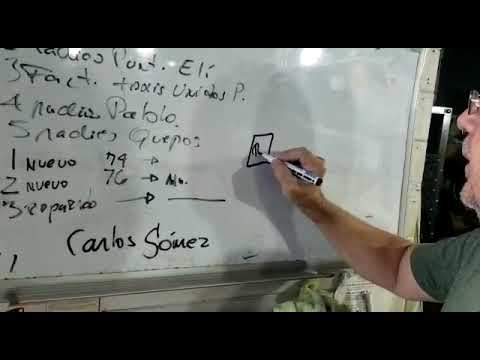 Radios Port. Elí
3 Fact. taxis Unidos P.
4 radios Pablo.
5 radios Quepos
1 Nuevo 74 →
2 Nuevo 76 →
3 reparado →
Carlos Gómez